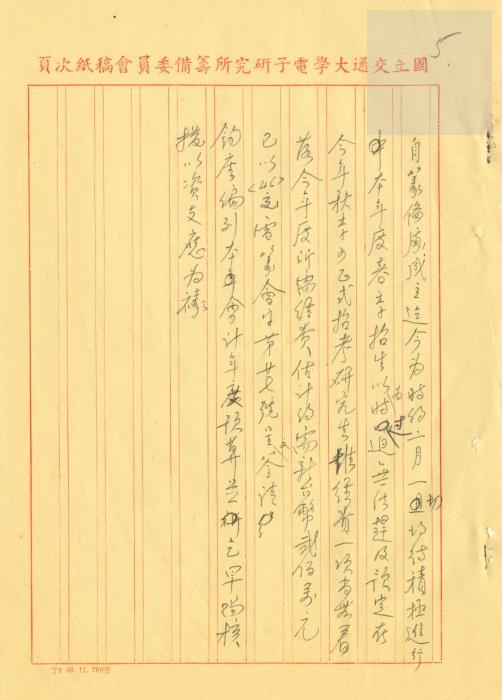 5.
國立交通大學電子研究所籌備委員會稿紙次頁
自籌備處成立迄今為時約二月一切均待積極進行
本年度春季招生以時為過無法趕及預定在
今年秋季可正式招考研究生惟經費一項尚無着
落今年度所需經費估計約需新台幣貳佰萬元
已以〈46〉交電籌會字第廿七號呈文簽請
鈞座編列本年會計年度預算並乞早賜核
撥以資支應為禱
T4 46. 11. 700張